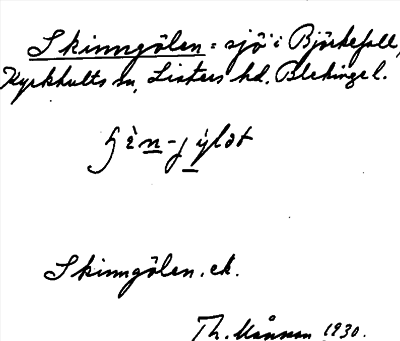 Skinngölen = sjö i Björkefall,
Kyrkhults sn, Listers hd. Blekinge l.
Skinngölen. ek.
Th. Månsson 1930.